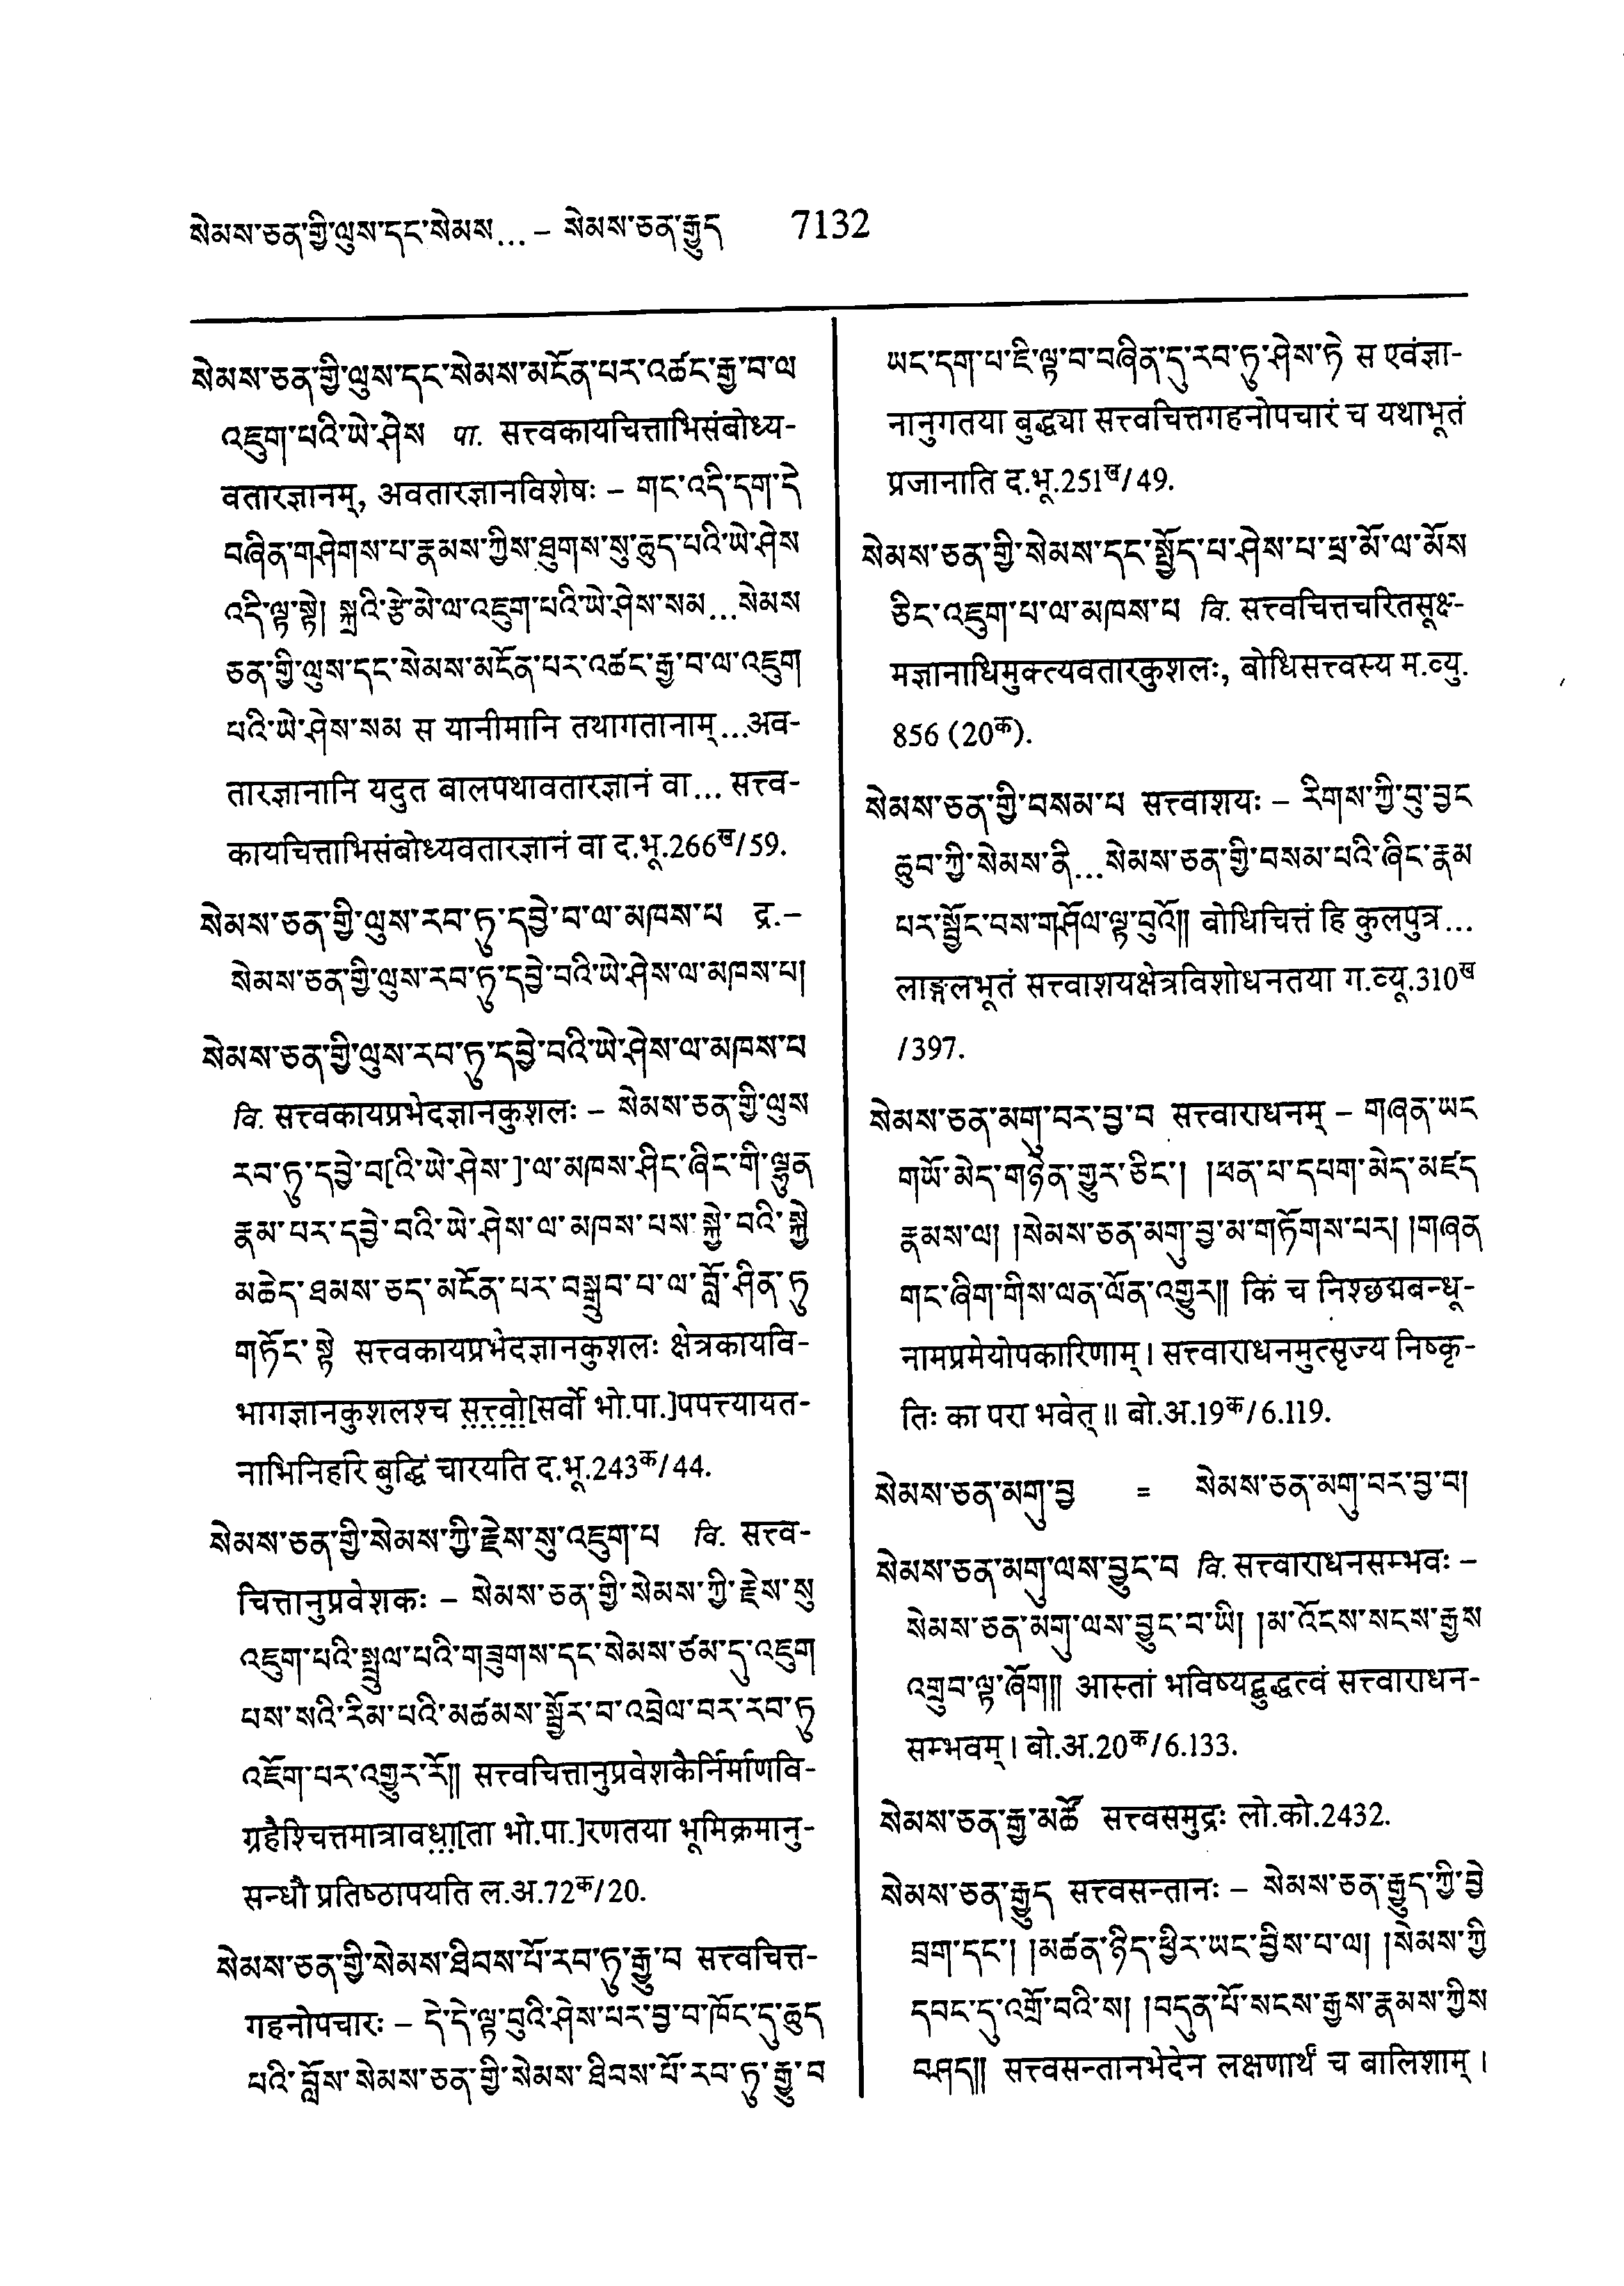 སེམས་ཅན་གྱི་ལུས་དང་སེམས...– སེམས་ཅན་རྒྱུད 7132
སེམས་ཅན་གྱི་ལུས་དང་སེམས་མངོན་པར་འཚང་རྒྱ་བ་ལ
འཇུག་པའི་ཡེ་ཤེས पा. सत्त्वकायचित्ताभिसंबोध्य-
वतारज्ञानम्, अवतारज्ञानविशेषः – གང་འདི་དག་དེ
བཞིན་གཤེགས་པ་རྣམས་ཀྱིས་ཐུགས་སུ་ཆུད་པའི་ཡེ་ཤེས
འདི་ལྟ་སྟེ། སྐྲའི་རྩེ་མེ་ལ་འཇུག་པའི་ཡེ་ཤེས་སམ...སེམས
ཅན་གྱི་ལུས་དང་སེམས་མངོན་པར་འཚང་རྒྱ་བ་ལ་འཇུག
པའི་ཡེ་ཤེས་སམ स यानीमानि तथागतानाम्...अव-
तारज्ञानानि यदुत बालपथावतारज्ञानं वा... सत्त्व-
कायचित्ताभिसंबोध्यवतारज्ञानं वा द.भू.266ख/59.
སེམས་ཅན་གྱི་ལུས་རབ་ཏུ་དབྱེ་བ་ལ་མཁས་པ द्र.–
སེམས་ཅན་གྱི་ལུས་རབ་ཏུ་དབྱེ་བའི་ཡེ་ཤེས་ལ་མཁས་པ།
སེམས་ཅན་གྱི་ལུས་རབ་ཏུ་དབྱེ་བའི་ཡེ་ཤེས་ལ་མཁས་པ
वि. सत्त्वकायप्रभेदज्ञानकुशलः – སེམས་ཅན་གྱི་ལུས
རབ་ཏུ་དབྱེ་བ[འི་ཡེ་ཤེས་]་ལ་མཁས་ཤིང་ཞིང་གི་ལྷུན
རྣམ་པར་དབྱེ་བའི་ཡེ་ཤེས་ལ་མཁས་པས་སྐྱེ་བའི་སྐྱེ
མཆེད་ཐམས་ཅད་མངོན་པར་བསྒྲུབ་པ་ལ་བློ་ཤིན་ཏུ
གཏོང་སྟེ सत्त्वकायप्रभेदज्ञानकुशलः क्षेत्रकायवि-
भागज्ञानकुशलश्च सत्त्वो[सर्वो भो.पा.]पपत्त्यायत-
नाभिनिर्हारे बुद्धिं चारयति द.भू.243क/44.
སེམས་ཅན་གྱི་སེམས་ཀྱི་རྗེས་སུ་འཇུག་པ वि. सत्त्व-
चित्तानुप्रवेशकः – སེམས་ཅན་གྱི་སེམས་ཀྱི་རྗེས་སུ
འཇུག་པའི་སྤྲུལ་པའི་གཟུགས་དང་སེམས་ཙམ་དུ་འཇུག
པས་སའི་རིམ་པའི་མཚམས་སྦྱོར་བ་འབྲེལ་བར་རབ་ཏུ
འཇོག་པར་འགྱུར་རོ།། सत्त्वचित्तानुप्रवेशकैर्निर्माणवि-
ग्रहैश्चित्तमात्रावधा[ता भो.पा.]रणतया भूमिक्रमानु-
सन्धौ प्रतिष्ठापयति ल.अ.72क/20.
སེམས་ཅན་གྱི་སེམས་ཐིབས་པོ་རབ་ཏུ་རྒྱུ་བ सत्त्वचित्त-
गहनोपचारः – དེ་དེ་ལྟ་བུའི་ཤེས་པར་བྱ་བ་ཁོང་དུ་ཆུད
པའི་བློས་སེམས་ཅན་གྱི་སེམས་ཐིབས་པོ་རབ་ཏུ་རྒྱུ་བ
ཡང་དག་པ་ཇི་ལྟ་བ་བཞིན་དུ་རབ་ཏུ་ཤེས་ཏེ स एवंज्ञा-
नानुगतया बुद्ध्या सत्त्वचित्तगहनोपचारं च यथाभूतं
प्रजानाति द.भू.251ख/49.
སེམས་ཅན་གྱི་སེམས་དང་སྤྱོད་པ་ཤེས་པ་ཕྲ་མོ་ལ་མོས
ཅིང་འཇུག་པ་ལ་མཁས་པ वि. सत्त्वचित्तचरितसूक्ष-
मज्ञानाधिमुक्त्यवतारकुशलः, बोधिसत्त्वस्य म.व्यु.
856 (20क).
སེམས་ཅན་གྱི་བསམ་པ सत्त्वाशयः – རིགས་ཀྱི་བུ་བྱང
ཆུབ་ཀྱི་སེམས་ནི...སེམས་ཅན་གྱི་བསམ་པའི་ཞིང་རྣམ
པར་སྦྱོང་བས་གཤོལ་ལྟ་བུའོ།། बोधिचित्तं हि कुलपुत्र...
लाङ्गलभूतं सत्त्वाशयक्षेत्रविशोधनतया ग.व्यू.310ख
/397.
སེམས་ཅན་མགུ་བར་བྱ་བ सत्त्वाराधनम् – གཞན་ཡང
གཡོ་མེད་གཉེན་གྱུར་ཅིང་། །ཕན་པ་དཔག་མེད་མཛད
རྣམས་ལ། །སེམས་ཅན་མགུ་བྱ་མ་གཏོགས་པར། །གཞན
གང་ཞིག་གིས་ལན་ལོན་འགྱུར།། किं च निश्छद्मबन्धू-
नामप्रमेयोपकारिणाम्। सत्त्वाराधनमुत्सृज्य निष्कृ-
तिः का परा भवेत्॥ बो.अ.19क/6.119.
སེམས་ཅན་མགུ་བྱ = སེམས་ཅན་མགུ་བར་བྱ་བ།
སེམས་ཅན་མགུ་ལས་བྱུང་བ वि. सत्त्वाराधनसम्भवः –
སེམས་ཅན་མགུ་ལས་བྱུང་བ་ཡི། །མ་འོངས་སངས་རྒྱས
འགྲུབ་ལྟ་ཞོག།། आस्तां भविष्यद्बुद्धत्वं सत्त्वाराधन-
सम्भवम्। बो.अ.20क/6.133.
སེམས་ཅན་རྒྱ་མཚོ सत्त्वसमुद्रः लो.को.2432.
སེམས་ཅན་རྒྱུད सत्त्वसन्तानः – སེམས་ཅན་རྒྱུད་ཀྱི་བྱེ
བྲག་དང་། །མཚན་ཉིད་ཕྱིར་ཡང་བྱིས་པ་ལ། །སེམས་ཀྱི
དབང་དུ་འགྲོ་བའི་ས། །བདུན་པོ་སངས་རྒྱས་རྣམས་ཀྱིས
བཤད།། सत्त्वसन्तानभेदेन लक्षणार्थं च बालिशाम्।